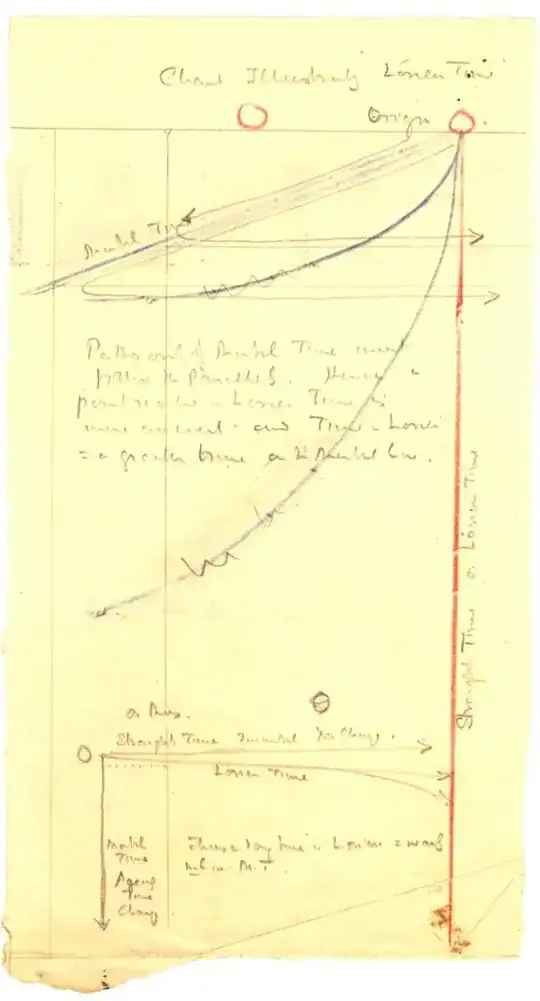 Chart Illustrating Lórien Time
Origin
Mortal Time
Paths out of Mortal Time must
follow the Parallels. Hence a
point reached in Lórien Time is
more ancient and Time in Lórien
= a greater time on the Mortal line.
Straight Time or Lórien Time
or Ares.
Straight Time Immortal No Change.
Lórien Time
Mortal
Time
Ageing
Time
Change
Thus a long time in Lórien =
in M.T.